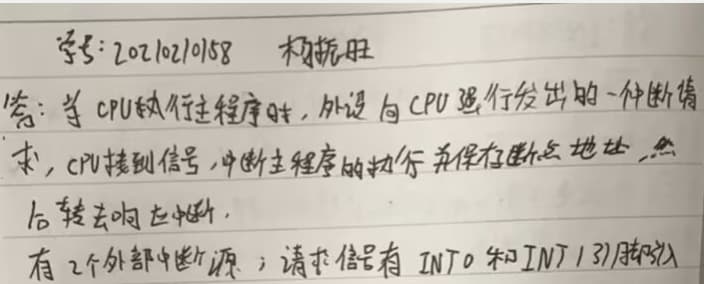 学号:20210210158 杨振旺
答:当CPU执行主程序时,外设向CPU强行发出的一种断请
求,CPU接到信号,中断主程序的执行并保存断点地址,然
后转去响应中断.
有2个外部中断源;请求信号有INT0和INT1引脚引入